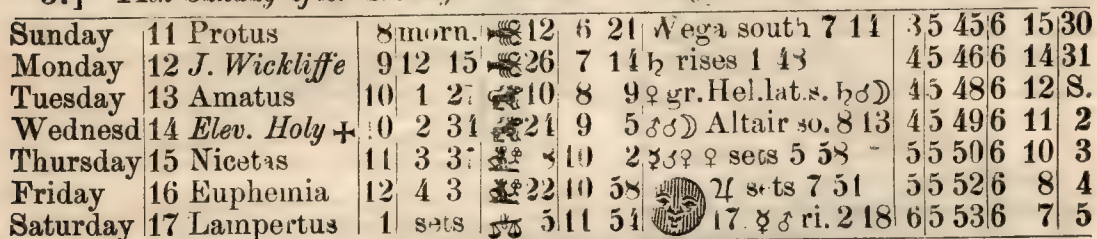 Sunday 11 Protus 8 morn. 12 6 21 Wega south 7 14 3 5 45 6 15 30
Monday 12 J. Wickliffe 9 12 15 26 7 14 ♄ rises 1 48 4 5 46 6 14 31
Tuesday 13 Amatus 10 1 27 10 8 9 ♀ gr. Hel. lat. s. ♄☌☽ 4 5 48 6 12 S.
Wednesd 14 Elev. Holy ✚ 10 2 31 24 9 5 ♂☌☽ Altair so. 8 13 4 5 49 6 11 2
Thursday 15 Nicetas 11 3 37 8 10 2 ☿☌♀ ♀ sets 5 58 5 5 50 6 10 3
Friday 16 Euphemia 12 4 3 22 10 58 ♃ sets 7 51 5 5 52 6 8 4
Saturday 17 Lampertus 1 sets ♎ 5 11 54 17. ☿ ♂ ri. 2 18 6 5 53 6 7 5